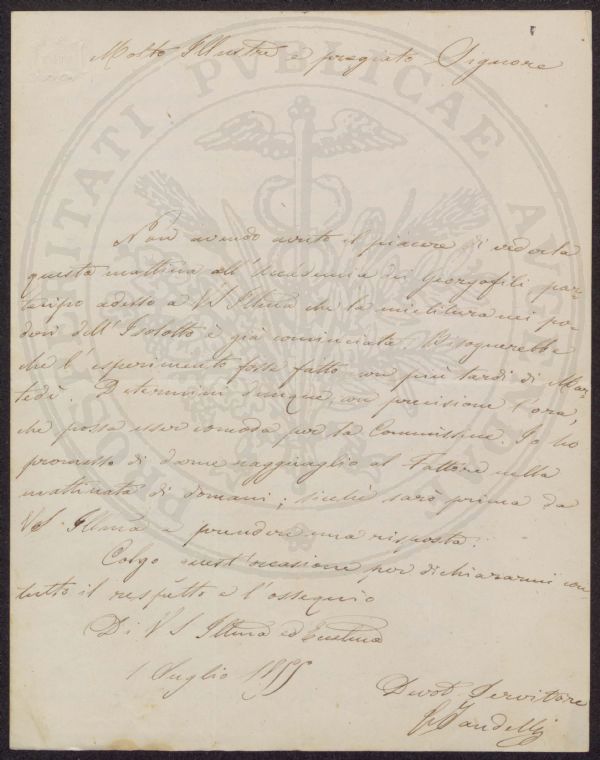 Molto Illustre e pregiato Signore
PROSPERITATI PVBLICAE AVGENDAE
Non avendo avuto il piacere di vederla
questa mattina all'Accademia dei Georgofili par-
tecipo adesso a VS Illma che la mietitura nei po-
deri dell'Isolotto è già cominciata. Bisognerebbe
che l'esperimento fosse fatto non più tardi di Mar-
tedì. Determini dunque con precisione l'ora,
che possa esser comoda per la Commissione. Io ho
promesso di darne ragguaglio al Fattore nella
mattinata di domani; sicchè sarò prima da
VS. Illma a prendere una risposta.
Colgo quest'occasione per dichiararmi con
tutto il rispetto e l'ossequio
Di VS Illma ed
1 Luglio 1855
Devot. Servitore